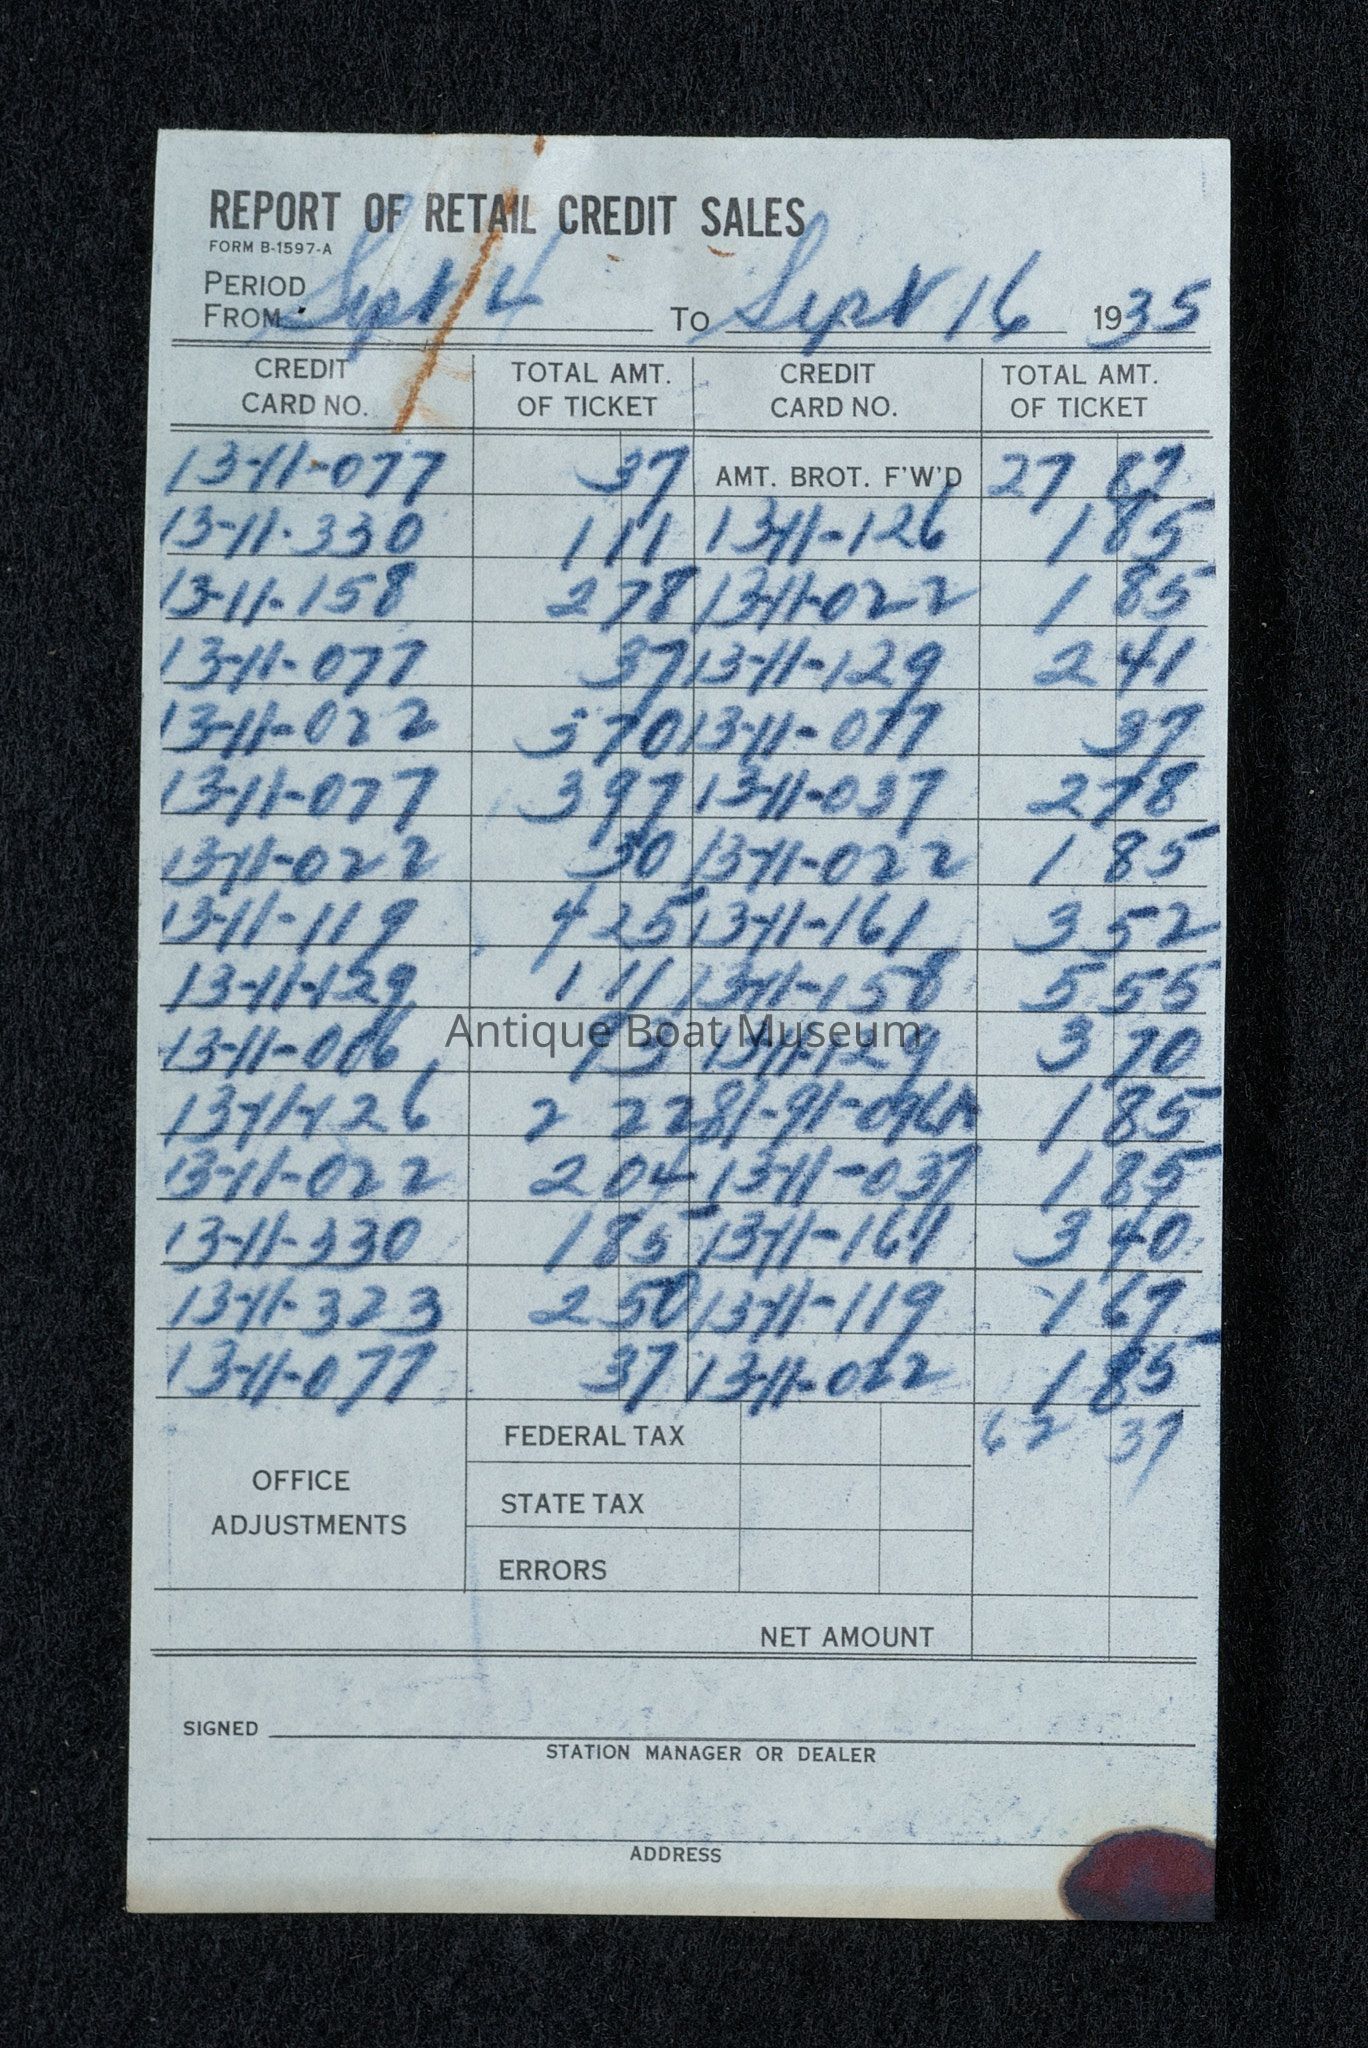 REPORT OF RETAIL CREDIT SALES
FORM B-1597-A
PERIOD
FROM Sept 4 TO Sept 16 1935
CREDIT CARD NO. TOTAL AMT. OF TICKET CREDIT CARD NO. TOTAL AMT. OF TICKET
13-11-077 37 AMT. BROT. F'W'D 27 87
13-11-330 1 11 13-11-126 1 85
13-11-158 2 78 13-11-022 1 85
13-11-077 37 13-11-129 2 41
13-11-022 3 70 13-11-077 37
13-11-077 3 97 13-11-037 2 78
13-11-022 30 13-11-022 1 85
13-11-119 4 25 13-11-161 3 52
13-11-129 1 11 13-11-158 5 55
13-11-006 13-11-129 3 70
Antique Boat Museum
13-11-126 2 22 1 85
13-11-022 2 04 13-11-037 1 85
13-11-330 1 85 13-11-161 3 40
13-11-323 2 50 13-11-119 1 67
13-11-077 37 13-11-022 1 85
62 37
OFFICE ADJUSTMENTS
FEDERAL TAX
STATE TAX
ERRORS
NET AMOUNT
SIGNED
STATION MANAGER OR DEALER
ADDRESS